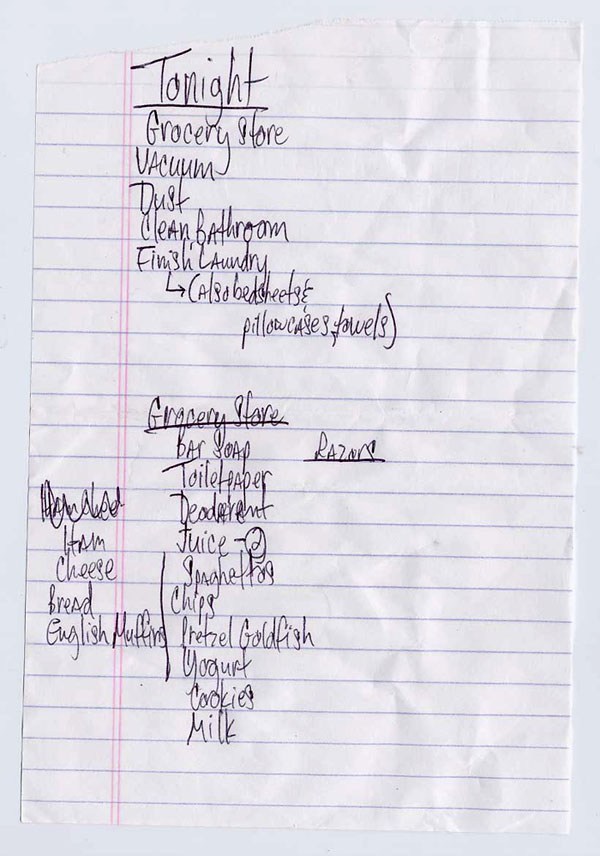 Tonight
Grocery Store
Vacuum
Dust
Clean Bathroom
Finish Laundry
↳(also bedsheets &
pillowcases, towels)
Grocery Store
Bar Soap
Razors
Toiletpaper
Deoderent
Ham
Juice - 2
Cheese
Spaghettios
Bread
Chips
English Muffins
Pretzel Goldfish
Yogurt
Cookies
Milk